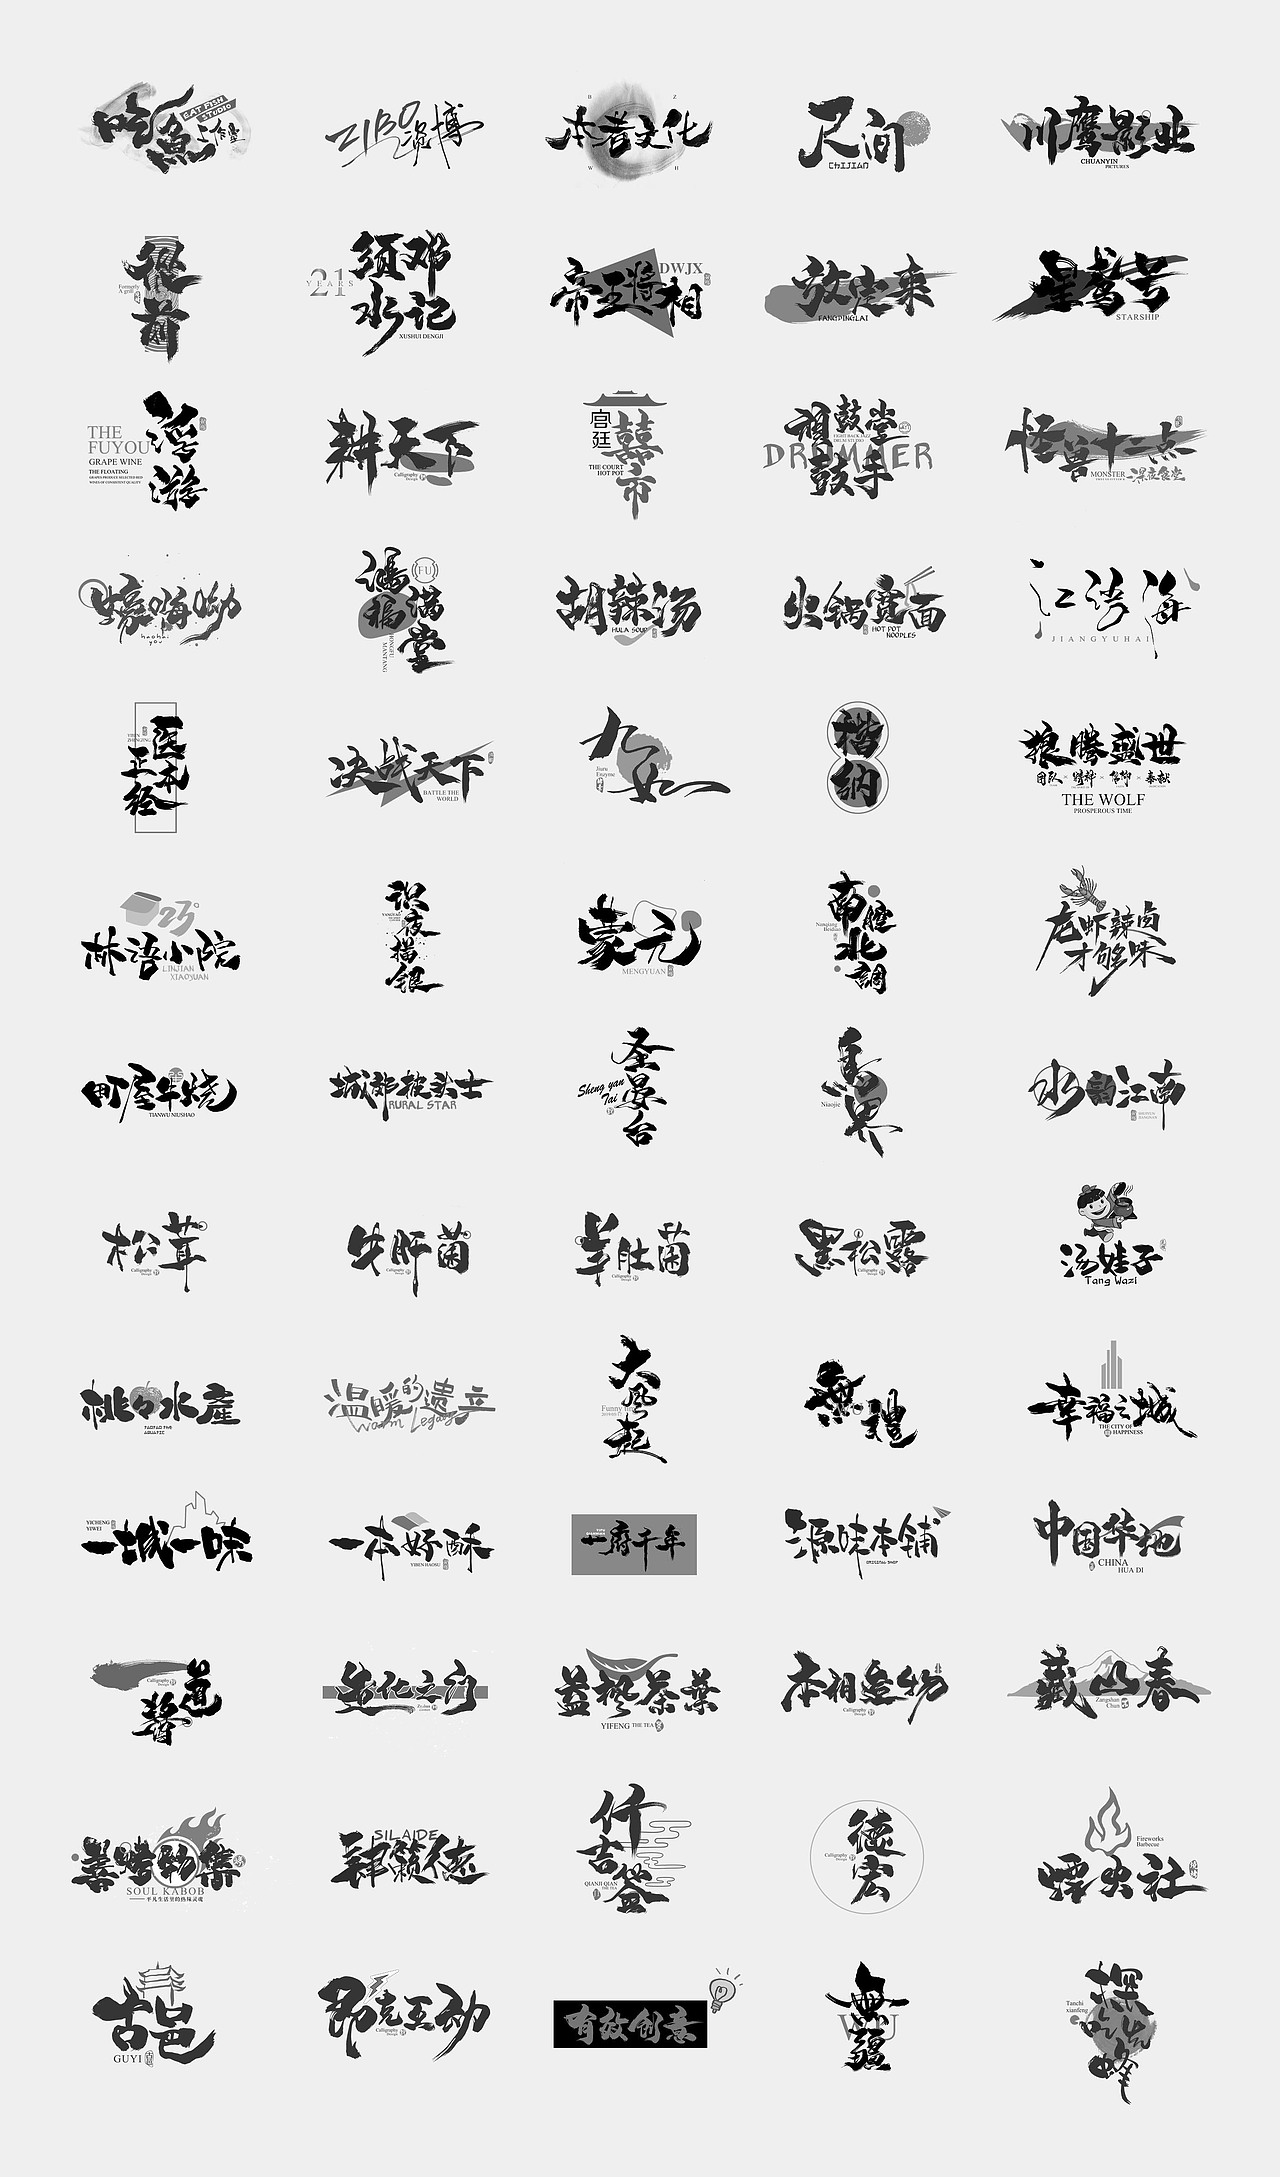 吃鱼
EAT FISH
STUDIO
ZIBO淄博
本者文化
B
Z
W
H
尺间
CHIJIAN
川鹰影业
CHUANYIN
PICTURES
从前
Formerly
A grill
须邓
水记
21
YEARS
XUSHUI DENGJI
帝王将相
DWJX
放空来
FANGPINGLAI
星鸢号
STARSHIP
浮游
THE
FUYOU
GRAPE WINE
THE FLOATING
耕天下
Calligraphy
Design
宫廷
囍市
THE COURT
HOT POT
胡鼓堂
鼓手
DRUMMER
怪兽十二点
MONSTER
深夜食堂
蠔嗨呦
haohai
you
鸿福满堂
FU
HONGFU
MANTANG
胡辣汤
HULA SOUP
火锅宽面
HOT POT
NOODLES
江渔海
JIANGYUHAI
医卦
正经
决战天下
BATTLE THE
WORLD
九如一
Jiuru
Enzyme
楷纳
狼腾盛世
团队 × 精神 × 信仰 × 奉献
THE WOLF
PROSPEROUS TIME
23°
林语小院
LINJIAN
XIAOYUAN
识夜描银
蒙元
MENGYUAN
南腔北調
Nanqiang
Beidiao
龙虾辣卤
才够味
町屋牛烧
TIANWU NIUSHAO
城郊披头士
RURAL STAR
圣晏台
Sheng yan
Tai
鸟界
Niaojie
水韵江南
松茸
牛肝菌
Calligraphy
Design
羊肚菌
Calligraphy
Design
黑松露
Calligraphy
Design
汤娃子
Tang Wazi
桃々水産
TAOTAO THE
AQUATIC
温暖的遗立
Warm Legacy
大风起
Funny
無禮
幸福之城
THE CITY OF
HAPPINESS
一城一味
YICHENG
YIWEI
一本好酥
YIBEN HAOSU
一府千年
源味本铺
ORIGINAL SHOP
中国华地
CHINA
HUA DI
道
Calligraphy
Design
造化之门
益枫茶葉
YIFENG THE TEA
本相造物
Calligraphy
Design
藏山春
Zangshan
Chun
善烤物集
SOUL KABOB
平凡生活里的热辣灵魂
肆籁德
SILAIDE
仟吉签
QIANJI QIAN
THE TEA
德宏
Calligraphy
Design
煙火社
Fireworks
Barbecue
古邑
GUYI
邵克互动
Calligraphy
Design
有效创意
無疆
WU
探吃仙峰
Tanchi
xianfeng